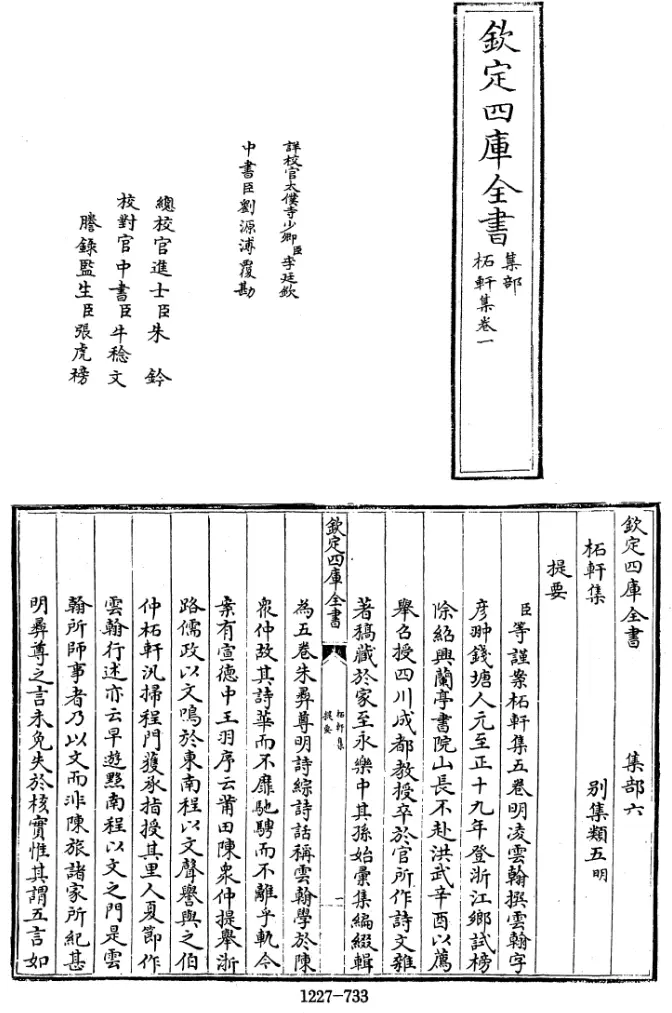 欽定四庫全書
集部
柘軒集卷一
詳校官太僕寺少卿臣李廷欽
中書臣劉源溥覆勘
總校官進士臣朱鈐
校對官中書臣牛稔文
謄錄監生臣張虎榜
欽定四庫全書 集部六
柘軒集 別集類五明
提要
臣等謹案柘軒集五卷明凌雲翰撰雲翰字
彥翀錢塘人元至正十九年登浙江鄉試榜
除紹興蘭亭書院山長不赴洪武辛酉以薦
舉召授四川成都教授卒於官所作詩文雜
著稿藏於家至永樂中其孫始彚集編綴輯
欽定四庫全書
柘軒集
提要
一
為五卷朱彛尊明詩綜詩話稱雲翰學於陳
衆仲故其詩華而不靡馳騁而不離乎軌今
案有宣德中王羽序云莆田陳衆仲提舉浙
路儒政以文鳴於東南程以文聲譽與之伯
仲柘軒汎掃程門獲承指授其里人夏節作
雲翰行述亦云早遊黟南程以文之門是雲
翰所師事者乃以文而非陳旅諸家所紀甚
明彛尊之言未免失於核實惟其謂五言如
1227-733